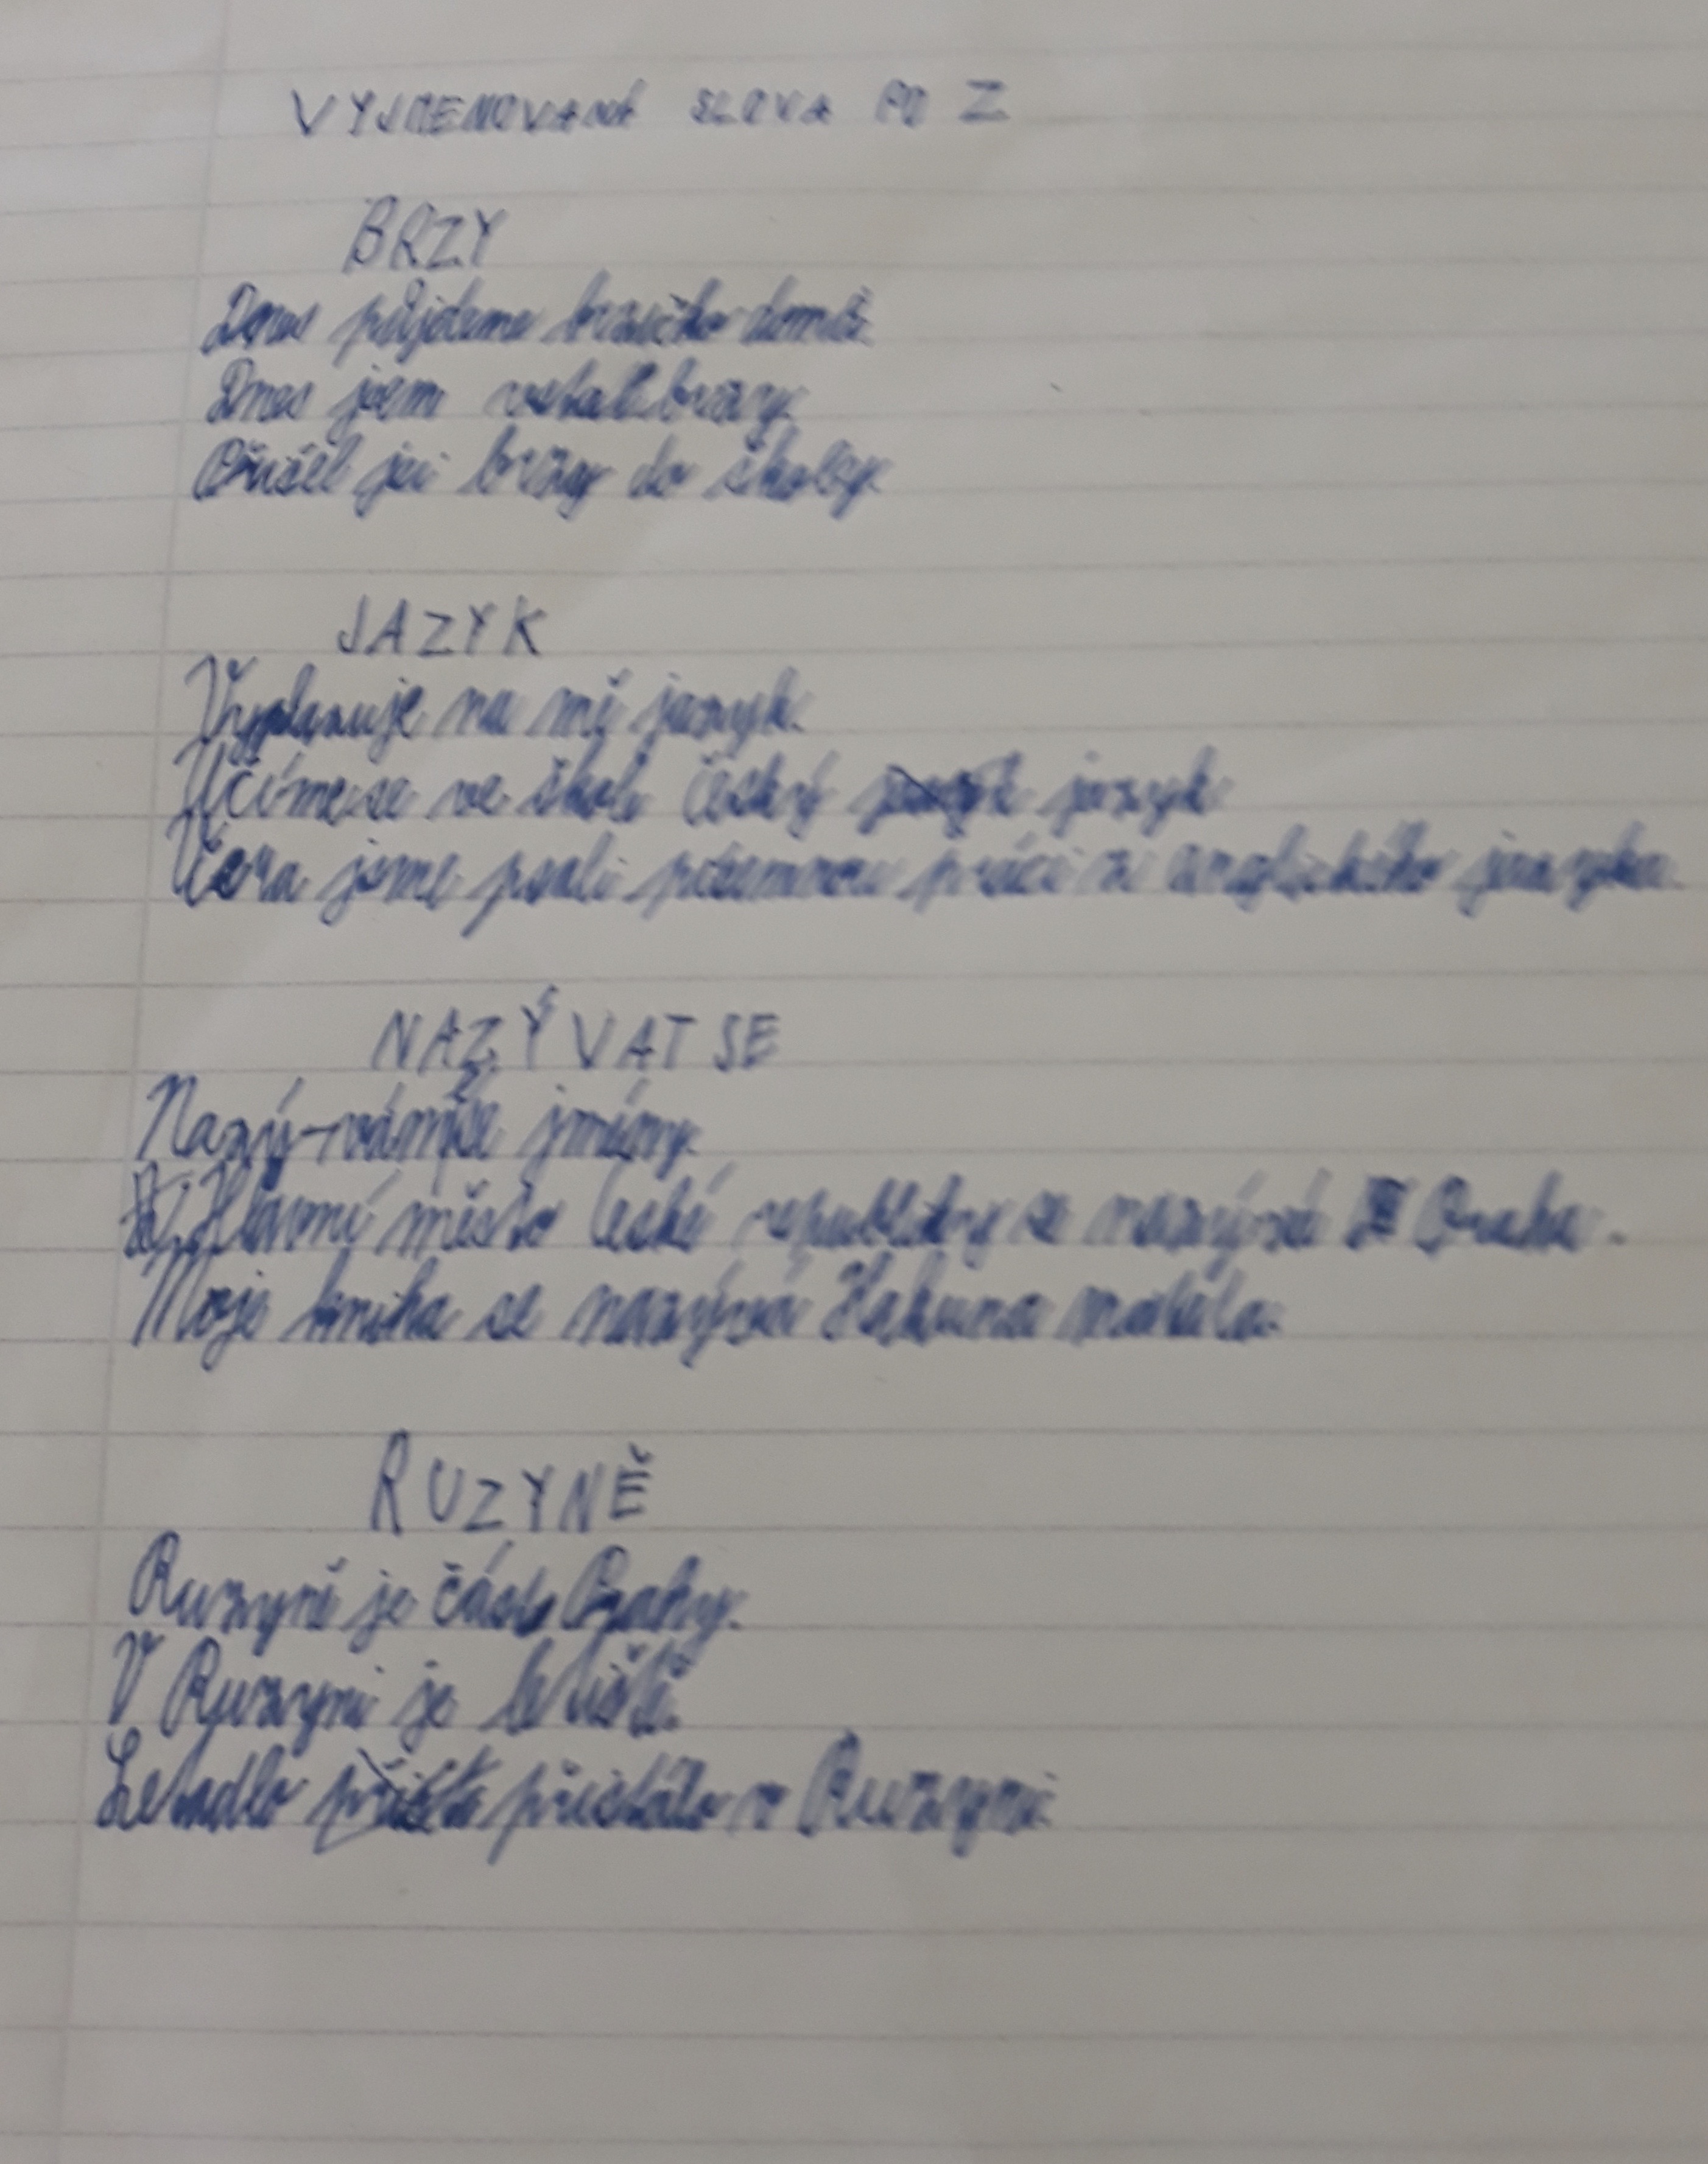 VYJMENOVANÁ SLOVA PO Z
BRZY
Dnes půjdeme brzičko domů.
Dnes jsem vstal brzy.
Přišel jsi brzy do školy.
JAZYK
Vyplazuje na mě jazyk.
Učíme se ve škole český jazyk
Včera jsme psali písemnou práci z anglického jazyka.
NAZÝVAT SE
Nazývám se jmény.
Hlavní město České republiky se nazývá Praha.
Moje kniha se nazývá Hakuna matata.
RUZYNĚ
Ruzyně je část Prahy.
V Ruzyni je letiště.
Letadlo přistálo v Ruzyni.